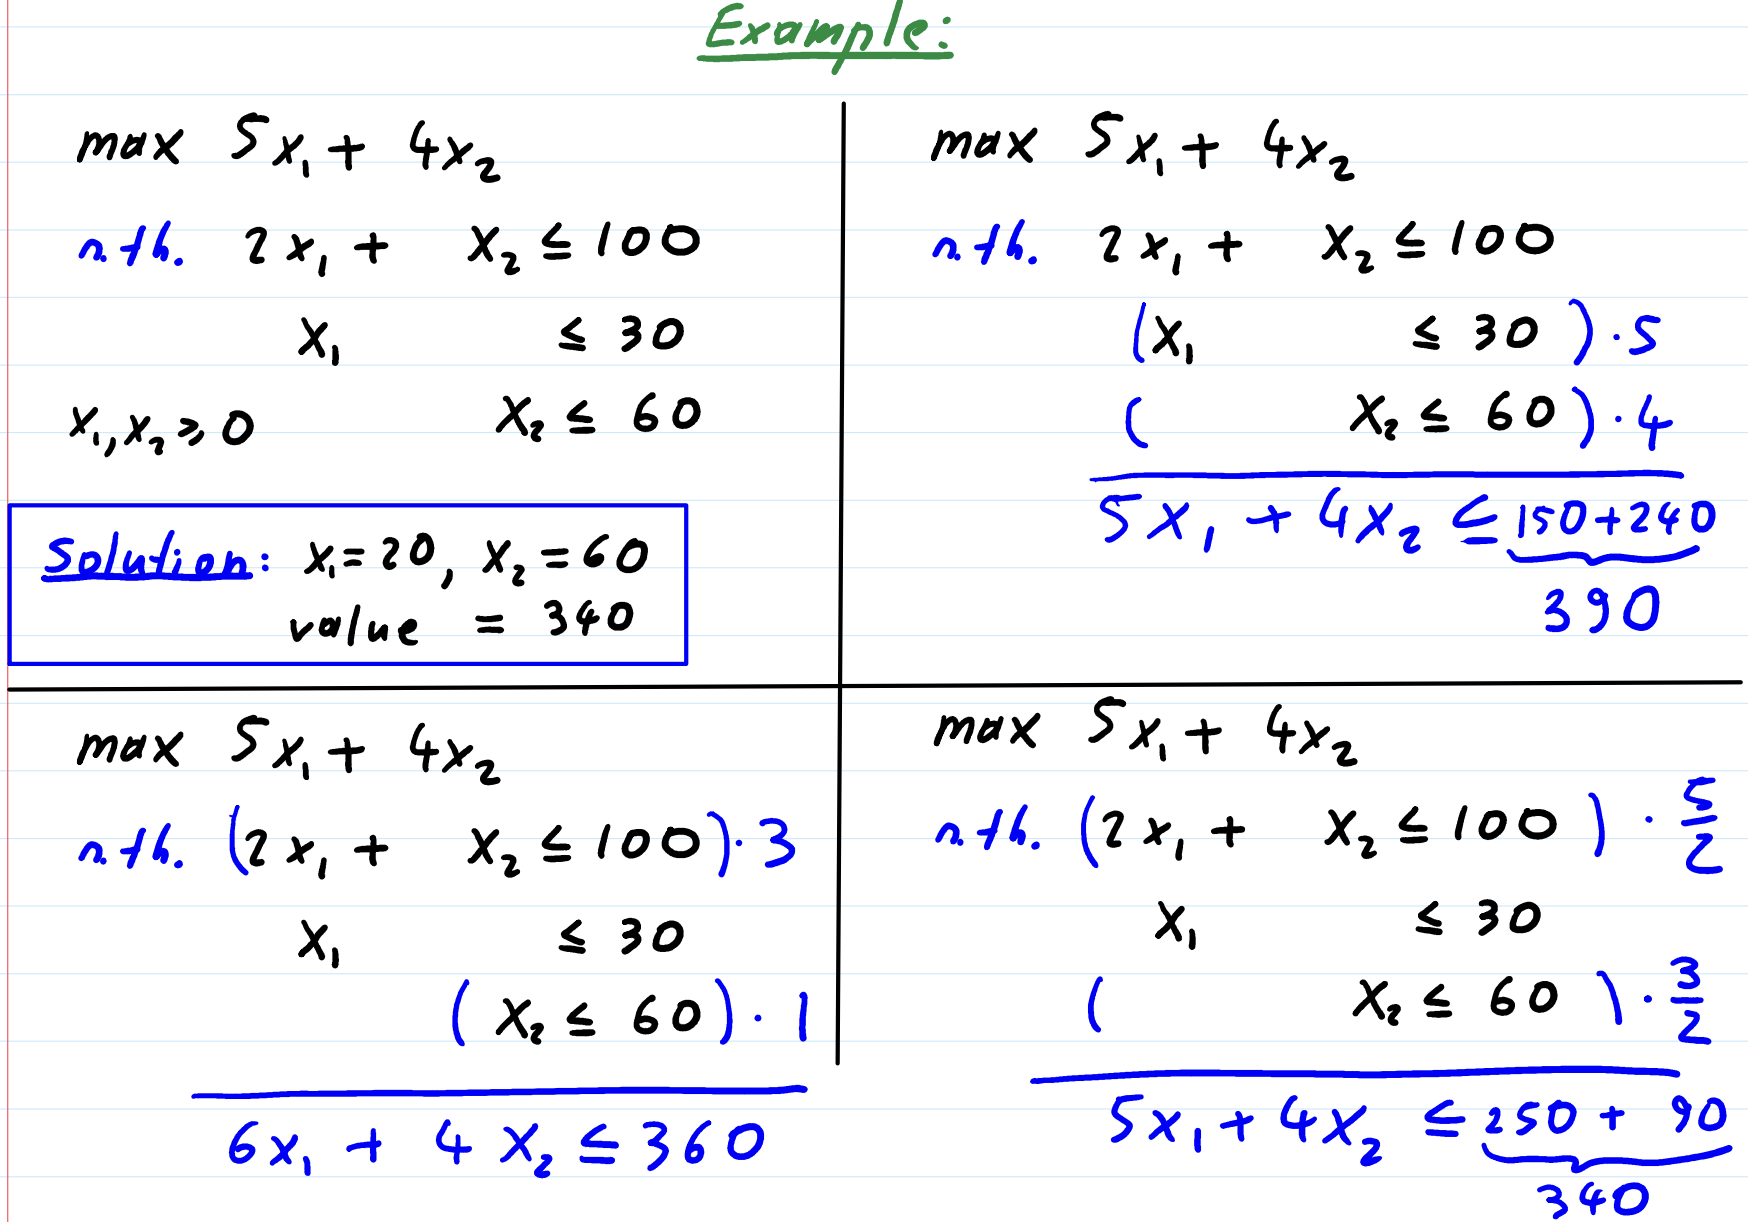 Example:
max 5x₁ + 4x₂
s.th. 2x₁ + x₂ ≤ 100
x₁ ≤ 30
x₁, x₂ ≥ 0 x₂ ≤ 60
Solution: x₁ = 20, x₂ = 60
value = 340
max 5x₁ + 4x₂
s.th. 2x₁ + x₂ ≤ 100
(x₁ ≤ 30) · 5
( x₂ ≤ 60) · 4
5x₁ + 4x₂ ≤ 150 + 240
390
max 5x₁ + 4x₂
s.th. (2x₁ + x₂ ≤ 100) · 3
x₁ ≤ 30
(x₂ ≤ 60) · 1
6x₁ + 4x₂ ≤ 360
max 5x₁ + 4x₂
s.th. (2x₁ + x₂ ≤ 100) · 5/2
x₁ ≤ 30
( x₂ ≤ 60) · 3/2
5x₁ + 4x₂ ≤ 250 + 90
340